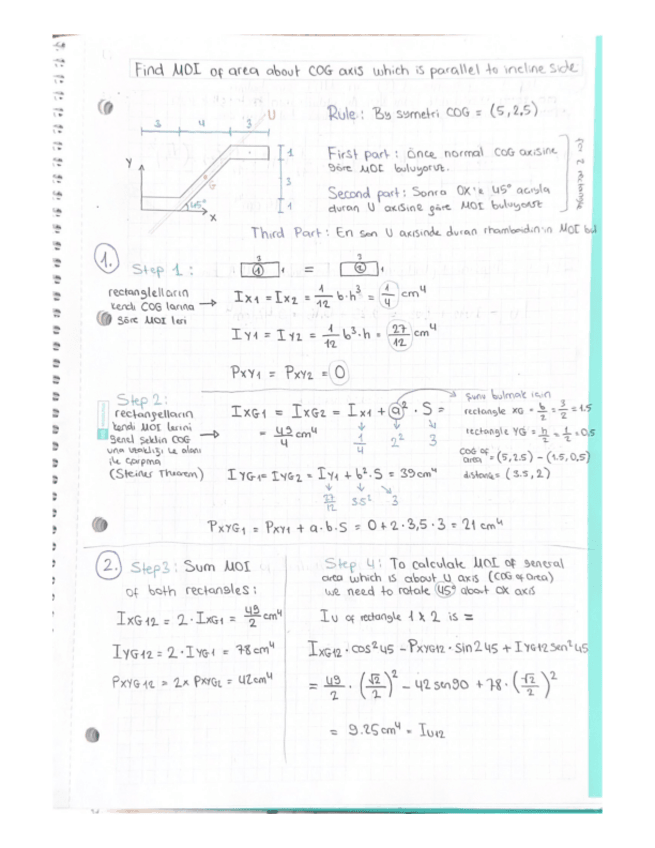 Find MOI of area about COG axis which is parallel to incline side
Rule: By symetri COG = (5,2,5)
3 4 3 U
Y G 45° X
1
3
1
First part: Önce normal COG axisine
göre MOI buluyoruz.
Second part: Sonra OX'e 45° acıyla
duran U axisine göre MOI buluyoruz
for 2 rectangle
Third Part: En son U axisinde duran rhomboidin'in MOI bul
1.
Step 1: 3 ① 1 = 3 ② 1
rectanglelların
kendi COG larına
göre MOI leri
Ix1 = Ix2 = 1/12 b·h³ = 1/4 cm⁴
Iy1 = Iy2 = 1/12 b³·h = 27/12 cm⁴
Pxy1 = Pxy2 = 0
Step 2:
rectangelların
kendi MOI lerini
genel şeklin COG
una uzaklığı ile alanı
ile çarpma
(Steiner Theorem)
IXG1 = IXG2 = Ix1 + a² · S =
= 49/4 cm⁴
1/4 2² 3
IYG1 = IYG2 = Iy1 + b²·S = 39cm⁴
27/12 3.5² 3
PXYG1 = Pxy1 + a·b·S = 0+2·3,5·3 = 21 cm⁴
Şunu bulmak için
rectangle XG = b/2 = 3/2 = 1.5
rectangle YG = h/2 = 1/2 = 0,5
COG of area = (5,2.5) - (1.5,0,5)
distance = (3.5,2)
2.
Step3: Sum MOI
of both rectangles:
IXG12 = 2·IXG1 = 49/2 cm⁴
IYG12 = 2·IYG1 = 78cm⁴
PXYG12 = 2x PXYG2 = 42cm⁴
Step 4: To calculate MOI of general
area which is about U axis (COG of area)
we need to rotate 45° about OX axis
Iu of rectangle 1 & 2 is =
IXG12 · cos²45 - PXYG12 · sin2 45 + IYG12 sen²45
= 49/2 · (√2/2)² - 42 sen90 + 78 · (√2/2)²
= 9.25cm⁴ = IU12